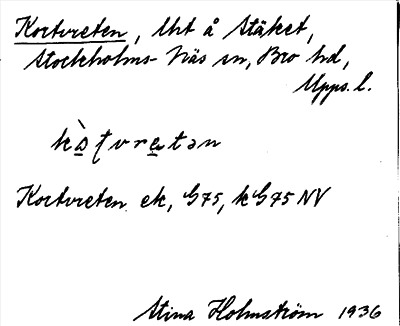 Kortvreten, lht å Stäket,
Stockholms-Näs sn, Bro hd,
Upps. l.
kòʈvretən
Kortvreten ek, G75, kG75 NV
Stina Holmström 1936